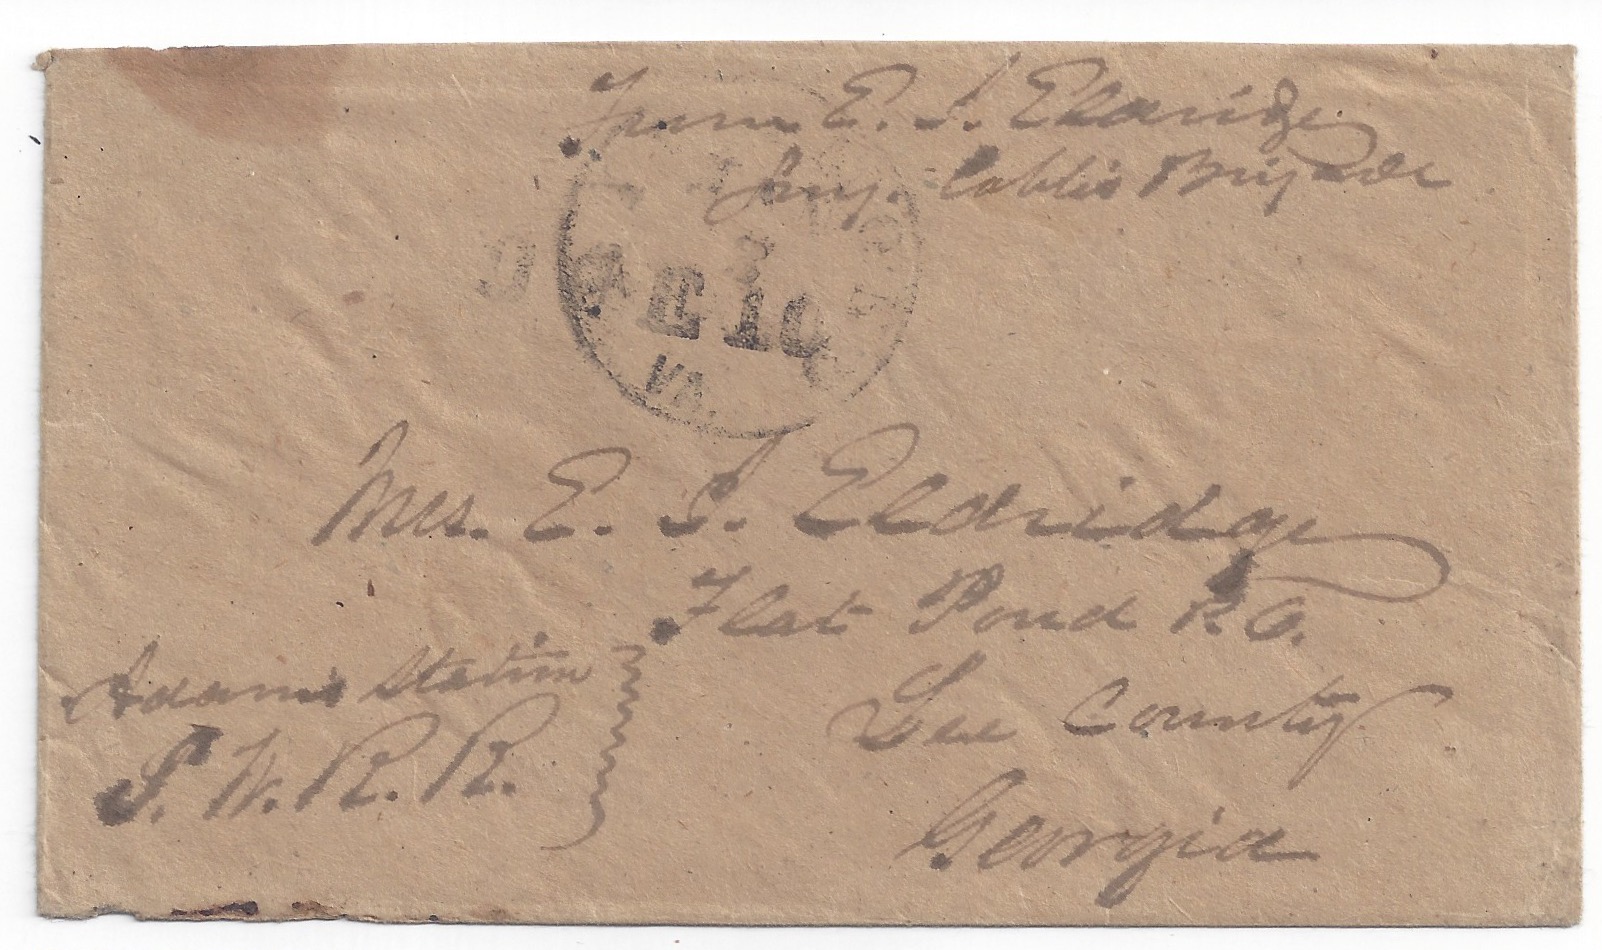 From E. S. Eldridge
Surg. Cobb's Brigade
DUE 10
VA.
Mrs. E. S. Eldridge
Flat Pond P.O.
Lee County
Georgia
Adams Station
S. W. R. R.